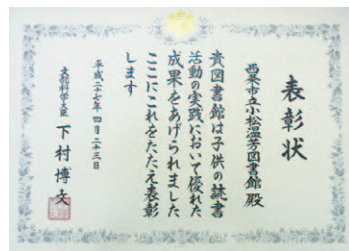 表彰状
西条市立小松温芳図書館 殿
貴図書館は子供の読書
活動の実践において優れた
成果をあげられました
ここにこれをたたえ表彰
します
平成二十七年四月二十三日
文部科学大臣 下村博文